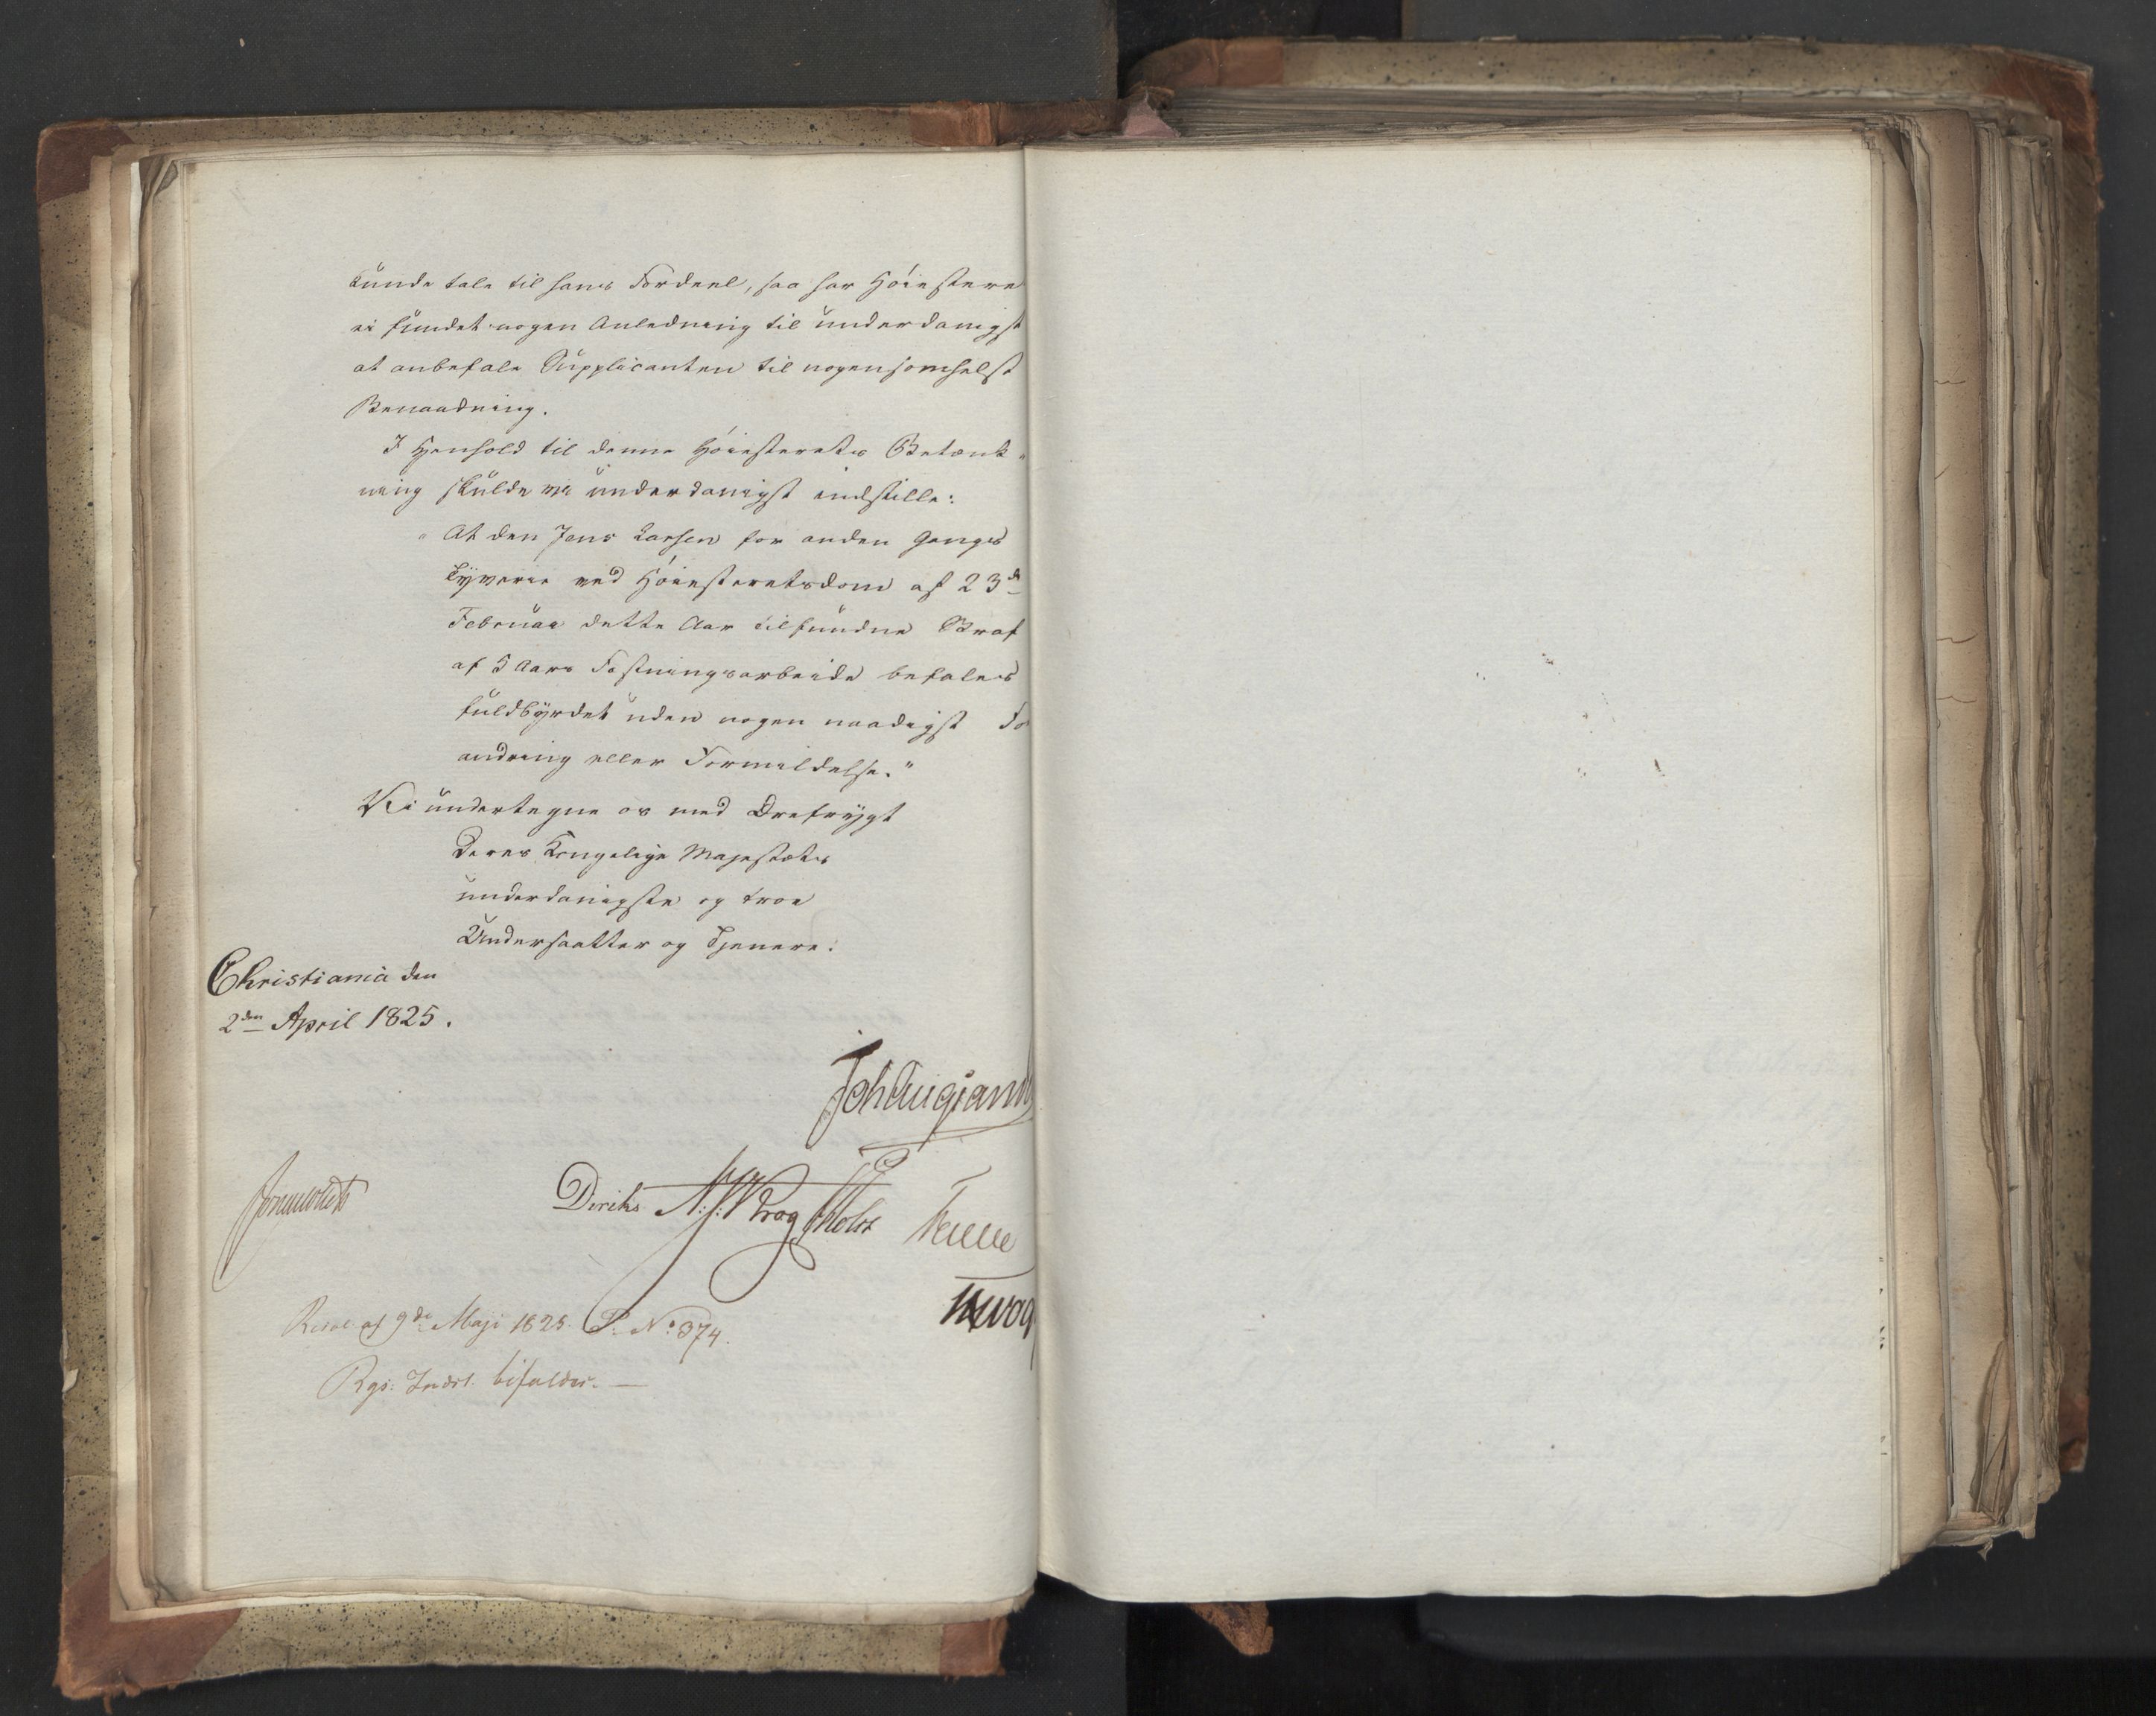 kunde tale til hans Fordeel, saa har Høiestere
ei fundet nogen Anledning til underdanigst
at anbefale Supplicanten til nogensomhelst
Benaadning.
I Henhold til denne Høiesterets Betænk-
ning skulde vi underdanigst indstille:
"At den Jens Larsen for anden Gangs
Tyverie ved Høiesteretsdom af 23de
Februar dette Aar tilfundne Straf
af 5 Aars Fæstningsarbeide befales
fuldbyrdet uden nogen naadigst For
andring eller Formildelse."
Vi undertegne os med Ærefrygt
Deres Kongelige Majestæts
underdanigste og troe
Undersaatter og Tjenere.
Christiania den
2den April 1825.
Joh Aug Sand
Diriks N: J: Krog Holst
Resol. af 9de Maji 1825. P: No 374.
Rgs: Indst. bifaldes. —